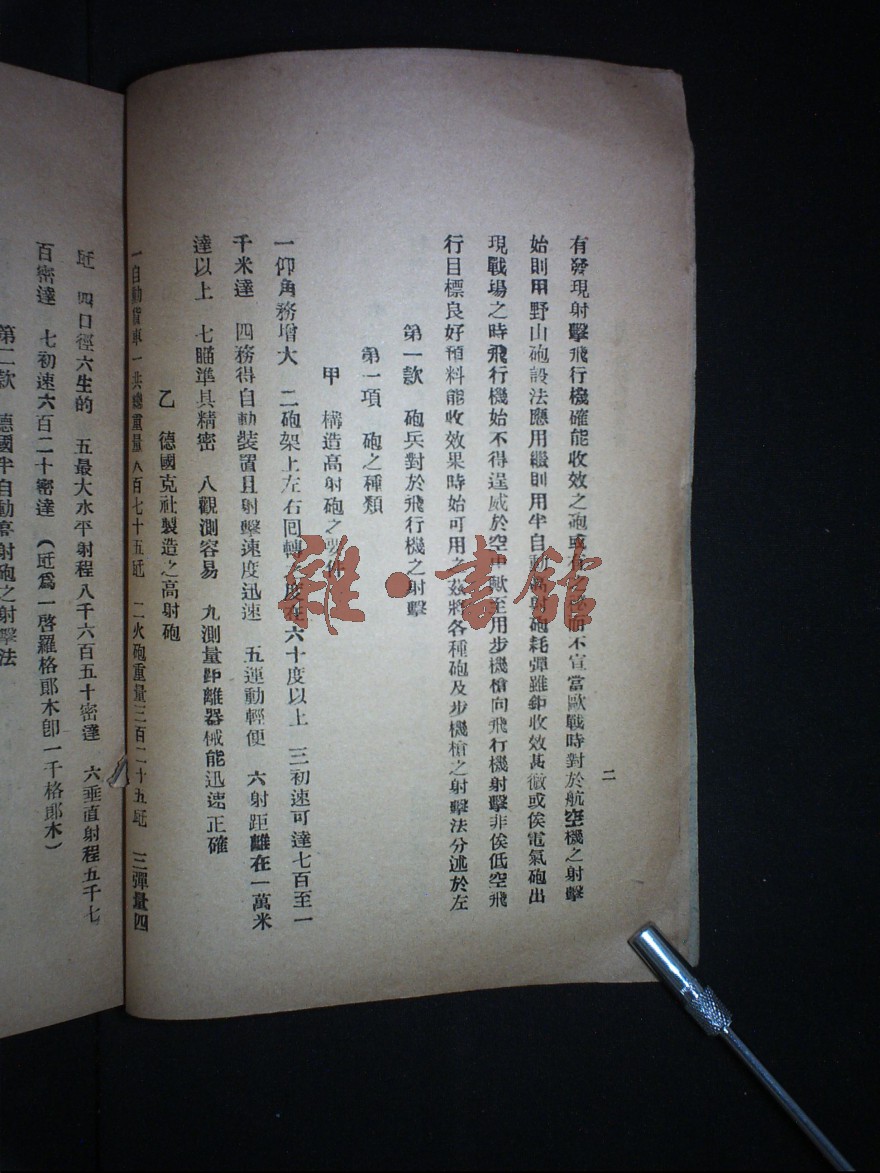 二
有發現射擊飛行機確能收效之砲或有之而不宣當歐戰時對於航空機之射擊
始則用野山砲設法應用繼則用半自動高射砲耗彈雖鉅收效甚微或俟電氣砲出
現戰場之時飛行機始不得逞威於空中歟至用步機槍向飛行機射擊非俟低空飛
行目標良好預料能收效果時始可用之茲將各種砲及步機槍之射擊法分述於左
第一款 砲兵對於飛行機之射擊
第一項 砲之種類
甲 構造高射砲之要件
一仰角務增大 二砲架上左右回轉 度在六十度以上 三初速可達七百至一
千米達 四務得自動裝置且射擊速度迅速 五運動輕便 六射距離在一萬米
達以上 七瞄準具精密 八觀測容易 九測量距離器械能迅速正確
乙 德國克社製造之高射砲
一自動貨車一共總重量八百七十五瓩 二火砲重量三百二十五瓩 三彈量四
瓩 四口徑六生的 五最大水平射程八千六百五十密達 六垂直射程五千七
百密達 七初速六百二十密達 (瓩爲一啓羅格郎木卽一千格郎木)
第二款 德國半自動高射砲之射擊法
雜·書館